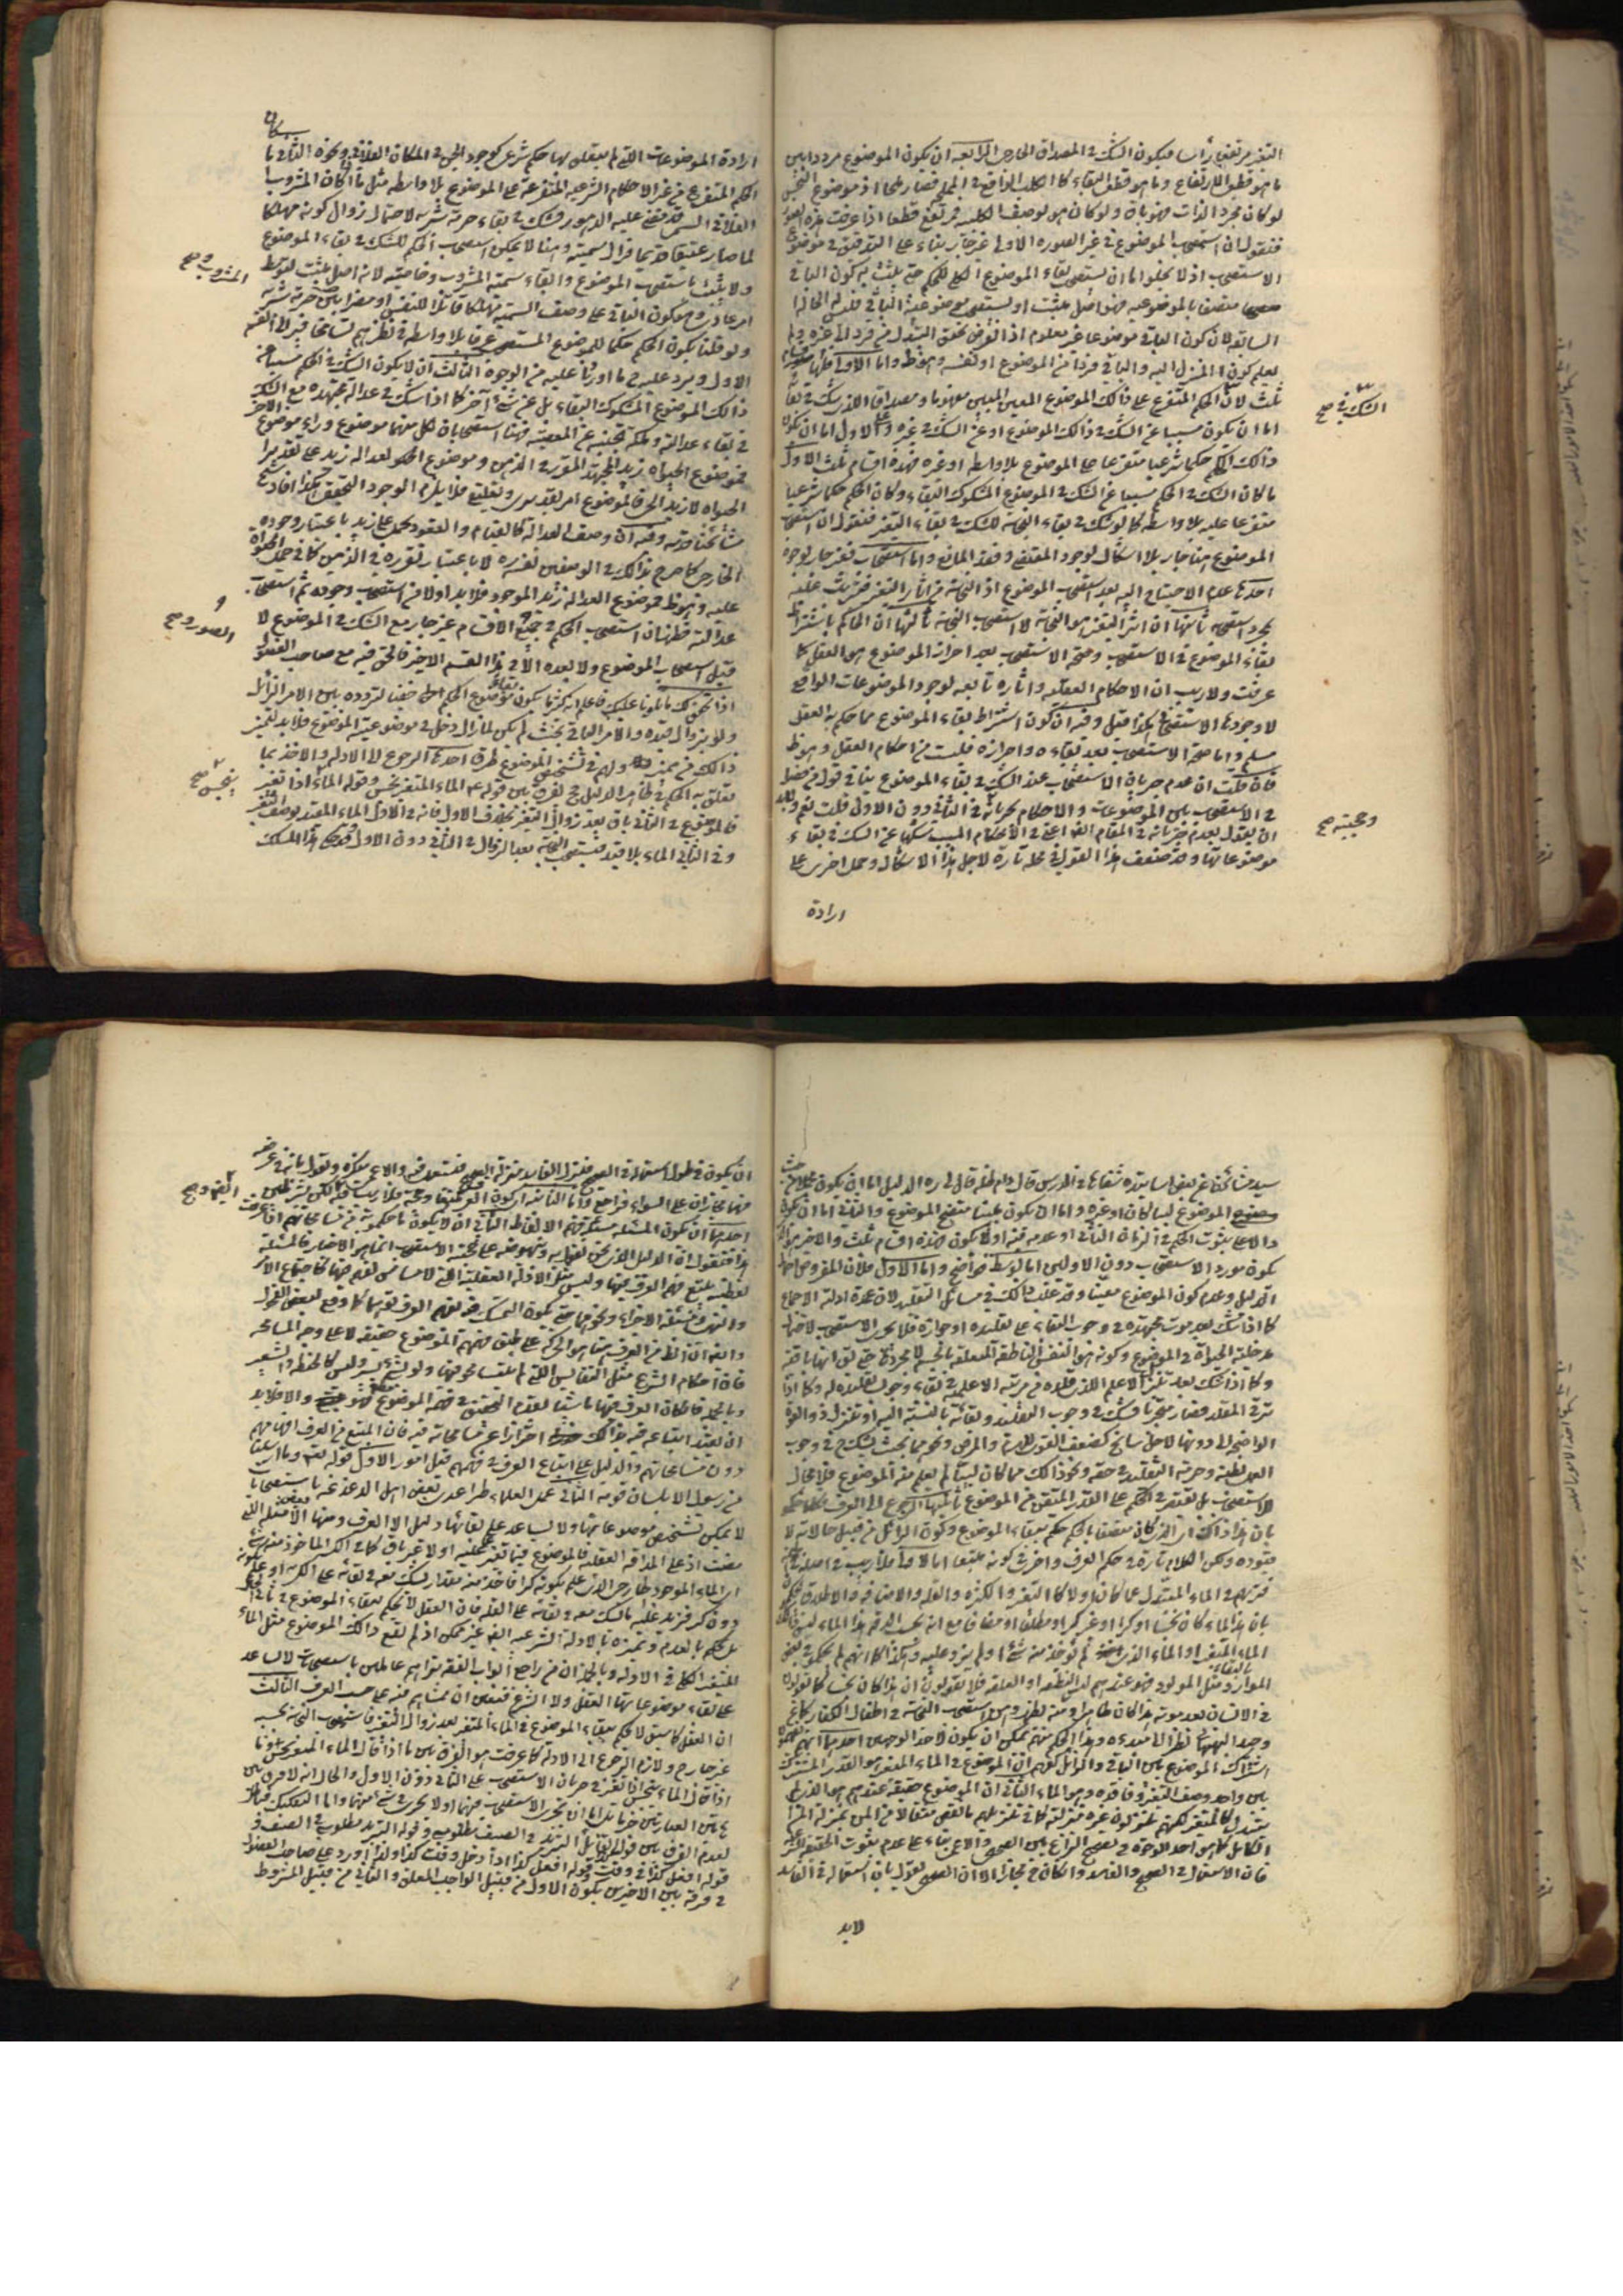 التغير مرتفعا رأسا فيكون الشك في المصداق الخارجي الرابعة ان يكون الموضوع مرددا بين
ما هو قطعي الارتفاع وما هو قطعي البقاء كالكلب الواقع في المملحة فصار ملحا اذ موضوع النجس
لو كان مجرد الذات فهو باق ولو كان هو بوصف الكلبية فمرتفع قطعا اذا عرفت هذه
فنقول ان استصحاب الموضوع في غير الصورة الاولى غير جار بناء على التدقيق في موضوع
الاستصحاب اذ لا يخلو اما ان يستصحب بقاء الموضوع الكلي للحكم حتى يثبت به كون الباقي
متصفا بالموضوعية فهو اصل مثبت او يستصحب موضوعية الباقي فليس له الحالة
السابقة لان كون الباقي موضوعا غير معلوم اذ الفرض تحقق التبدل من فرد الى غيره ولم
يعلم كون المنزل اليه والباقي فردا من الموضوع او نفسه وهو ظ واما الاول
ثلث لان الحكم المتفرع على ذلك الموضوع المعين المبين مفهوما ومصداقا الذي شك في بقائه
اما ان يكون مسببا عن الشك في ذلك الموضوع او عن الشك في غيره وعلى الاول اما ان يكون
ذلك الحكم حكما شرعيا متفرعا على الموضوع بلا واسطة او غيره فهذه اقسام ثلث الاول
ما كان الشك في الحكم مسببا عن الشك في الموضوع المشكوك البقاء وكان الحكم حكما شرعيا
متفرعا عليه بلا واسطة كما لو شك في بقاء النجاسة للشك في بقاء التغير فنقول ان استصحاب
الموضوع هنا جار بلا اشكال لوجود المقتضي وفقد المانع واما استصحاب فغير جار لوجوه
احدها عدم الاحتياج اليه بعد استصحاب الموضوع اذ النجاسة من اثار التغير فيترتب عليه
بمجرد استصحابه ثانيها ان اثر التغير هو النجاسة لا استصحاب النجاسة ثالثها ان الحاكم باشتراط
بقاء الموضوع في الاستصحاب وصحة الاستصحاب بعد احراز الموضوع هو العقل كما
عرفت ولا ريب ان الاحكام العقلية واثاره تابعة لوجود الموضوعات الواقعي
لا وجودها الاستصحابي هكذا قيل وفيه ان كون اشتراط بقاء الموضوع مما حكم به العقل
مسلم واما صحة الاستصحاب بعد بقاءه واحرازه فليست من احكام العقل وهو ظ
فان قلت ان عدم جريان الاستصحاب عند الشك في بقاء الموضوع ينافي قول من فصل
في الاستصحاب بين الموضوعات والاحكام بجريانه في الثاني دون الاول قلت نعم
ان يقول بعدم جريانه في المقام ايضا اعني في الاحكام المسبب شكها عن الشك في بقاء
موضوعاتها وقد ضعف هذا القول في محله تارة لاجل هذا الاشكال وحمل اخرى على
ارادة
الشك في صح
وحجيته صح
ارادة الموضوعات التي لم يتعلق بها حكم شرعي كوجود الجن في المكان الفلاني ونحوه الثاني ما
الحكم المتفرع من غير الاحكام الشرعية المتفرعة على الموضوع بلا واسطة مثل ما اذا كان المشروب
الفلاني السم قد مضى عليه الدهور فشك في بقاء حرمة شربه لاحتمال زوال كونه مهلكا
لما صار عتيقا قديما فزال سميته وهنا لا يمكن استصحاب الحكم للشك في بقاء الموضوع
ولا يثبت باستصحاب الموضوع وابقاء سمية المشروب وخاصيته لانه اصل مثبت لتوسط
امر عادي وهو كون الباقي على وصف السمية مهلكا قاتلا للنفس او مضرا بالبدن حرمة شربه
ولو قلنا بكون الحكم حكما للموضوع المستصحب عرفا بلا واسطة في نظرهم تسامحا فيرجع الى القسم
الاول ويرد عليه ح ما اوردنا عليه من الوجوه الثالث ان لا يكون الشك في الحكم مسببا عن
ذلك الموضوع المشكوك البقاء بل عن شيء آخر كما اذا شك في عدالة مجتهده مع الشك
في بقاء عدالته وملكة تجنبه عن المعصية فهنا استصحابان لكل منهما موضوع وراء موضوع الاخر
فموضوع الحيوة زيد المجتهد المتقرر في الذهن وموضوع الحكم بعدالة زيد على تقدير
الحيوة لا زيد الحي فالموضوع امر تقديري وتعليقي فلا يلزم الوجود التحقيقي هكذا افاد شيخ
مشايخنا قدس سره وفيه ان وصف العدالة كالقيام والقعود يحمل على زيد باعتبار وجوده
الخارجي كما صرح بذلك في الوصفين نفسه لا باعتبار تقرره في الذهن كما في حمل الحيوة
عليه وهو ظ فموضوع العدالة زيد الموجود فلا بد اولا من استصحاب وجوده ثم استصحاب
عدالته فظهر ان استصحاب الحكم في جميع الاقسام غير جار مع الشك في الموضوع لا
قبل استصحاب الموضوع ولا بعده الا في هذا القسم الاخير فالحق فيه مع صاحب الفصول
اذا تحقق لك ما تلونا عليك فاعلم انه كثيرا ما يكون بقاء موضوع الحكم امرا خفيا لتردده بين الامر الزائل
ولو بزوال قيده والامر الباقي بحيث لم يكن لما زال دخل في موضوعية الموضوع فلا بد لتميز
ذلك من مميز ولهم في تشخيص الموضوع طرق احدها الرجوع الى الادلة والاخذ بما
تعلق به الحكم في ظاهر الدليل ح يفرق بين قوله ع الماء المتغير نجس وقوله الماء اذا تغير
فالموضوع في الثاني باق بعد زوال التغير بخلاف الاول فانه في الاول الماء المقيد بوصف التغير
وفي الثاني الماء بلا قيد فيستصحب النجاسة بعد الزوال في الثاني دون الاول وهذا المسلك
المشروب صح
الصور صح
ينجس صح
سيد مشايخنا عن بعض اساتيده شفاها في الدرس قال دام ظله قال لي ره الدليل اما ان يكون مجملا من حيث
الموضوع لبيا كان او غيره واما ان يكون مبينا متضح الموضوع والثاني اما ان يكون
دالا على ثبوت الحكم في الزمان الثاني او عدمه فيه او لا يكون فهذه اقسام ثلث والاخير هو
يكون مورد الاستصحاب دون الاولين اما الوسط فواضح واما الاول فلان المفروض اجمال
الدليل وعدم كون الموضوع معينا وقد غفلت ذلك في مسائل التقليد لان عمدة ادلته الاجماع
كما اذا شك بعد موت مجتهده في وجوب البقاء على تقليده او جوازه فلا يجري الاستصحاب لاحتمال
مدخلية الحيوة في الموضوع وكونه هو النفس الناطقة المتعلقة بالجسد لا مجردة حتى يق انها باقية
وكما اذا شك بعد تنزل الاعلم الذي قلده من مرتبة الاعلمية في بقاء وجوب تقليده له وكما اذا
ترقى المقلد فصار متجزيا فشك في وجوب التقليد وبقائه بالنسبة اليه او تنزل ذو القوة
الواضح الى دونها لاجل سانح كضعف القوى للهرم والمرض ونحوهما بحيث يشك ح في وجوب
العمل بظنه وحرمة التقليد في حقه ونحو ذلك مما كان لبيا لم يعلم منه الموضوع فلا مجال
للاستصحاب بل يقتصر في الحكم على القدر المتيقن من الموضوع ثانيها الرجوع الى العرف
بان هذا ذاك اي الذي كان متصفا بالحكم حكم ببقاء الموضوع وكون الزائل من قبيل حالاته لا
قيوده ومحل الكلام تارة في حكم العرف واخرى كونه متبعا اما الاول فلا ريب في اصله
في الماء المتبدل عما كان اولا كالتغير والكثرة والقلة والاضافة والاطلاق
بان هذا الماء كان نجسا او كرا او غير كر او مطلقا او مضافا مع انه بحسب الدقة هذا الماء ليس
الماء المتغير او الماء الذي لم تؤخذ منه شيء او لم يزد عليه وهكذا كما انهم لم يحكموا في بعض
الموارد بالبقاء مثل المولود فهو عندهم ليس النطفة او العلقة فلا يقولون ان هذا كان نجسا كما يقولون
في الانسان بعد موته هذا كان طاهرا ومنه يظهر وهن استصحاب النجاسة في اطفال الكفار كما عن
وحيد البهبهاني نظرا الى مبدءه وهذا الحكم منهم يمكن ان يكون لاحد الوجهين احدهما انهم
اشتراك الموضوع بين الباقي والزائل كفهم ان الموضوع في الماء المتغير هو القدر المشترك
بين واجد وصف التغير وفاقده وهو الماء الثاني ان الموضوع حقيقة عندهم هو الفرد
المتبدل كالمتغير لكنهم ينزلون غيره منزلته كما في تنزيلهم ناقص مثقال من المن بمنزلة المن
الكامل كما هو احد الوجوه في توضيح النزاع بين الصحيحي والاعمي بناء على عدم ثبوت الحقيقة الشرعية
فان الاستعمال في الصحيح والفاسد وان كان مجازا الا ان الصحيحي يقول بان استعماله في الفاسد
لابد
ان يكون في طول استعماله في الصحيح فينزل الفاسد منزلة الصحيح فيستعمل فيه والاعمي ينكره ويقول بانه في عرضه
فهما مجازان على السواء فراجع واما الثاني اي كون العرف متبعا وحجة فلا ريب فيه لكن بشرطين
احدهما ان يكون المسئلة مبتنية على فهم الالفاظ الثاني ان لا يكون ما حكموا به من مسامحاتهم اذا عرفت
هذا فنقول ان الدليل الذي نحن بصدده ونهوضه على حجية الاستصحاب انما هو الاخبار فالمسئلة
لفظية يتبع فهم العرف فيها وليس مثل الادلة العقلية التي لا مساس لفهم فيها كاجتماع الامر
والنهي ومسئلة الاجزاء ونحوهما حتى يكون التمسك فيه بفهم العرف توهما كما وقع لبعض الفحول
وايضا ان نظر العرف هنا هو الحكم على طبق فهم الموضوع حقيقة لا على وجه المسامحة
فان احكام الشرع مثل النفائس التي لم يتسامحوا فيها ولو بشيء يسير وليس كالحنطة والشعير
وبالجملة فما كان العرف فيها ما شيئا لعدم التحقيق في فهم الموضوع فهو والا فلا بد
ان يعتد اتباعه فيه بذلك احترازا عن مسامحاته فيه فان المتبع من العرف افهامهم
دون مسامحاتهم والدليل على اتباع العرف في فهمهم قبل امور الاول قوله تع وما ارسلنا
من رسول الا بلسان قومه الثاني عمل العلماء طرا عدى بعض اهل الدغدغة باستصحاب ما
لا يمكن تشخيص موضوعاتها ولا يساعد على بقائها دليل الا العرف ومنها الامثلة التي
مضت اذ على المداقة العقلية فالموضوع فيما تغير عقلية اولا غير باق كما في الكر الماخوذ منه شيء
اي الماء الموجود الخارجي الذي علم بكونه كرا فاخذ منه مقدار يشك معه في بقائه على الكرية او علم بكونه
دون كر فزيد عليه ما يشك معه في بقائه على القلة فان العقل لا يحكم ببقاء الموضوع في ثاني الحال
بل يحكم بالعدم وتميزه بالادلة الشرعية ايضا غير ممكن اذ لم يقع ذلك الموضوع مثل الماء
المتغير الكلي في الادلة وبالجملة ان من راجع ابواب الفقه تراهم عاملين باستصحاب لا يساعد
على بقاء موضوعاتها العقل ولا الشرع فتعين ان مشاهم فيه على حسب العرف الثالث
ان العقل كما سبق لا يحكم ببقاء الموضوع في الماء المتغير بعد زوال التغير فاستصحاب النجاسة بحسبه
غير جار ح ولازم الرجوع الى الادلة كما عرفت هو الفرق بين ما اذا قال الماء المتغير نجس وما
اذا قال الماء ينجس اذا تغير في جريان الاستصحاب على الثاني دون الاول والحال انه لا فرق بين
هاتين العبارتين جزما بل اما ان يجري الاستصحاب فيهما او لا يجري في شيء منهما واما التفكيك فباطل
لعدم الفرق بين قول القائل التبريد في الصيف مطلوب وقوله التبريد مطلوب في الصيف و
قوله افعل كذا في وقت وقوله افعل كذا اذا دخل وقت كذا ولذا اورد على صاحب الفصول
في فرقه بين الاخيرين بكون الاول من قبيل الواجب المعلق والثاني من قبيل المشروط